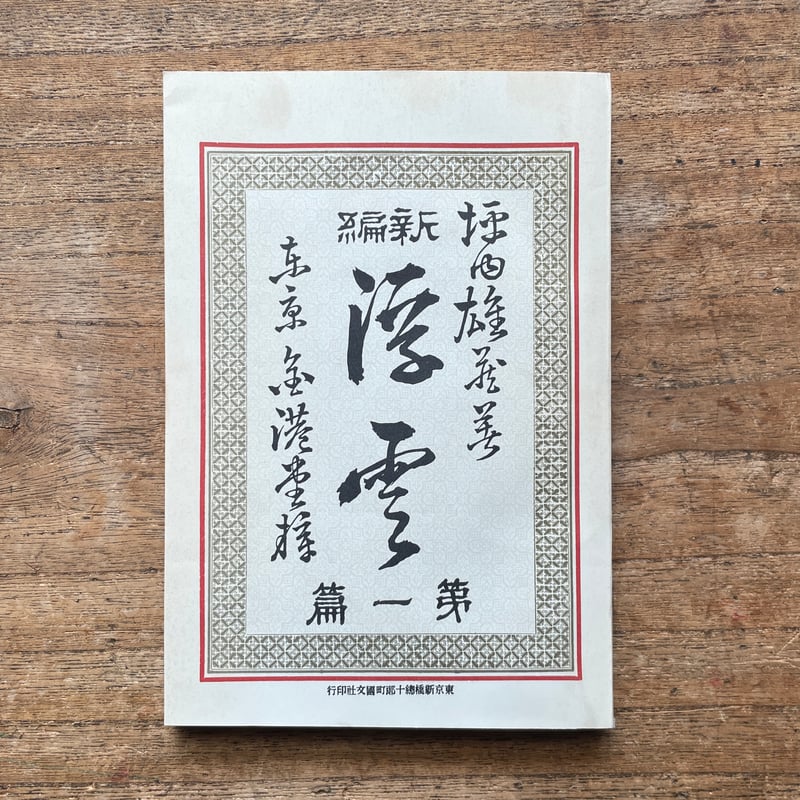 坪内雄藏著
新編
浮雲
第一篇
東京 金港堂梓
東京新橋總十郎町國文社印行